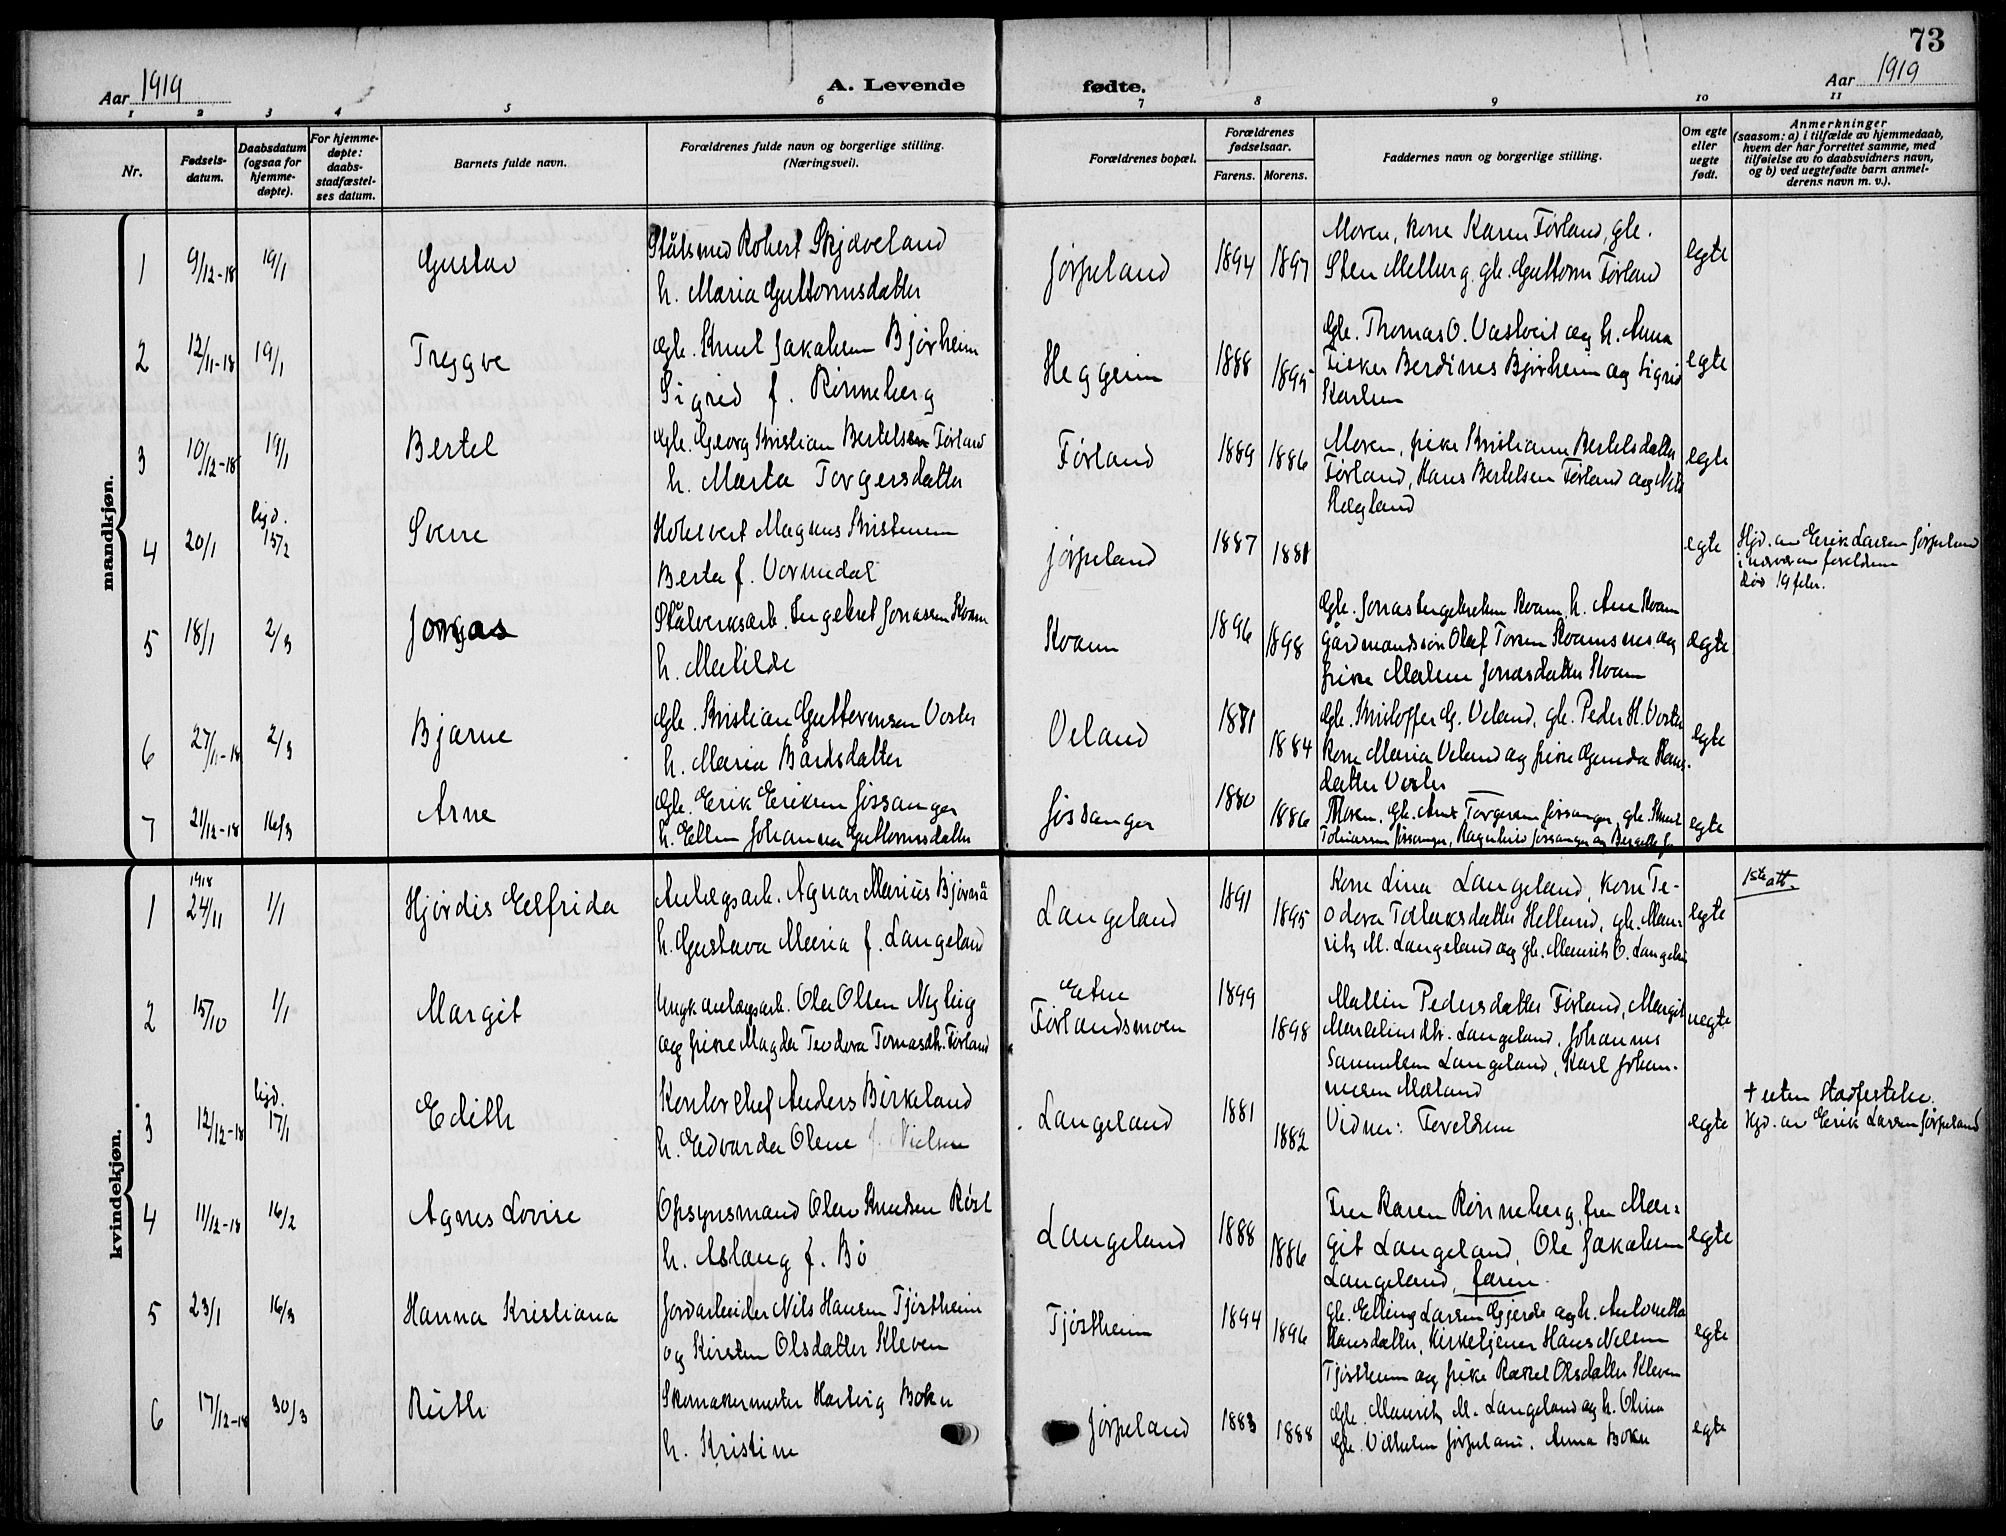 73
Aar 1919
A. Levende fødte.
Aar 1919
1 2 3 4 5 6 7 8 9 10 11
Nr.
Fødsels-
datum.
Daabsdatum
(ogsaa for
hjemme-
døpte).
For hjemme-
døpte:
daabs-
stadfæstel-
ses datum.
Barnets fulde navn.
Forældrenes fulde navn og borgerlige stilling.
(Næringsvei).
Forældrenes bopæl.
Forældrenes
fødselsaar.
Farens. Morens.
Faddernes navn og borgerlige stilling.
Om egte
eller
uegte
født.
Anmerkninger
(saasom: a) i tilfælde av hjemmedaab,
hvem der har forrettet samme, med
tilføielse av to daabsvidners navn,
og b) ved uegtefødte barn anmel-
derens navn m. v.).
mandkjøn.
1 9/12-18 19/1 Gustav
Robert Skjæveland
h. Maria Guttormsdatter
Jørpeland 1894 1897
Moren, kone Karen Førland, gb.
Sten Melberg, gb. Guttorm Førland
egte
2 12/11-18 19/1 Tryggve
gb. Knut Jakobsen Bjørheim
Sigrid f. Rønneberg
Heggeim 1888 1895
Gb. Thomas O. Vastveit og h. Anna
Fisker Berdines Bjørheim og Sigrid
Karlsen
egte
3 10/12-18 19/1 Bertel
gb. Georg Kristian Bertelsen Førland
h. Marta Torgersdatter
Førland 1889 1886
Moren, pike Kristianne Bertelsdatter
Førland, Hans Bertelsen Førland og Nils
Hægland
egte
4 20/1 hjd. 15/2 Sverre
Hotelvert Magnus Kristensen
Berta f. Vormedal
Jørpeland 1887 1881
egte
Hjd. av Erik Larsen Jørpeland
i nærvær av foreldrene
Død 19 febr.
5 18/1 2/3 Jonas
Stålverksarb. Ingebret Jonassen Kvam
h. Matilde
Kvam 1896 1898
Gb. Jonas Ingebretsen Kvam, h. Ane Kvam
gårdmandssøn Olaf Torsen Kvamsnes og
pike Malene Jonasdatter Kvam
egte
6 27/11-18 2/3 Bjarne
Gb. Kristian Guttormsen Voster
h. Maria Bårdsdatter
Veland 1881 1884
Gb. Kristoffer G. Veland, gb. Peder H. Voster
kone Maria Veland og pike Gunda Hans-
datter Voster
egte
7 21/12-18 16/3 Arne
Gb. Erik Eriksen Jøssanger
h. Ellen Johanna Guttormsdatter
Jøssanger 1880 1886
Moren, Gb. Torgersen Jøssanger, gb. Knut
Tobiassen Jøssanger, Ragnhild Jøssanger og
egte
kvindekjøn.
1 1918 24/11 1/1 Hjørdis Elfrida
Anlægsarb. Agnar Marius Bjørnå
h. Gustava Maria f. Langeland
Langeland 1891 1895
Kone Lina Langeland, kone Te-
odora Tollaksdatter Helland, gb. Mau-
ritz M. Langeland og gb. Mauritz O. Langeland
egte
1ste att.
2 15/10 1/1 Margit
Ungk. anlægsarb. Ole Olsen Nygling
og pike Magda Teodora Tomasdtr. Førland
Etne
Førlandsmoen 1899 1898
Mallin Pedersdatter Førland, Margit
Marselinsdtr. Langeland, Johannes
Samuelsen Langeland, Karl Johan-
nesen Mæland
uegte
3 12/12-18 hjd. 17/1 Edith
Kontorchef Anders Birkeland
h. Edvarda Olene f. Nielsen
Langeland 1881 1882
Vidner: Foreldrene
egte
† uten stadfestelse.
Hjd. av Erik Larsen Jørpeland
4 11/12-18 16/2 Agnes Lovise
Opsynsmand Olav Knudsen Røst
h. Aslaug f. Bø
Langeland 1888 1886
Fru Karen Rønneberg, fru Mar-
git Langeland, Ole Jakobsen
Langeland, faren.
egte
5 23/1 16/3 Hanna Kristiana
Jordarbeider Nils Hansen Tjøstheim
og Kirsten Olsdatter Kleven
Tjøstheim 1894 1896
gb. Elling Larsen Gjerde og h. Antonetta
Hansdatter, kirketjener Hans Nilsen
Tjøstheim og pike Rakel Olsdatter Kleven
egte
6 17/12-18 30/3 Ruth
Skomakermester Hartvig Bokn
h. Kristine
Jørpeland 1883 1888
gb. Mauritz M. Langeland og h. Olina
Gb. Vilhelm Jørpeland, Anna Bokn
egte